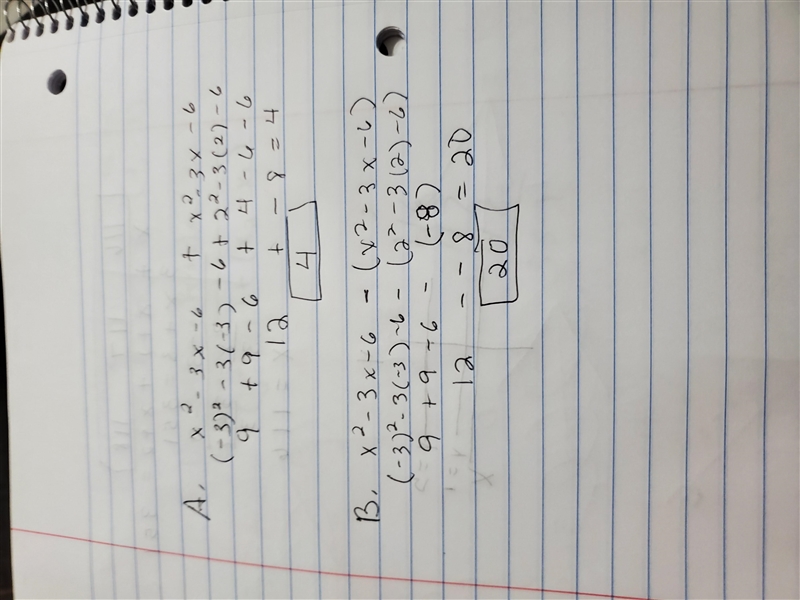 A. x² - 3x - 6 + x² - 3x - 6
(-3)² - 3(-3) - 6 + 2² - 3(2) - 6
9 + 9 - 6 + 4 - 6 - 6
12 + - 8 = 4
4
B. x² - 3x - 6 - (x² - 3x - 6)
(-3)² - 3(-3) - 6 - (2² - 3(2) - 6)
9 + 9 - 6 - (-8)
12 - - 8 = 20
20